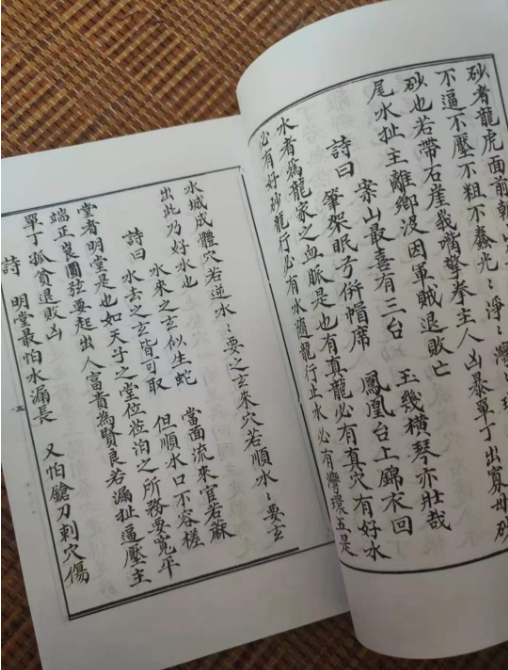 砂者龍虎面前
不逼不壓不粗不蠢光:淨:灣
砂也若帶石崖我嘴擎拳主人凶暴單丁出寡母砂
尾水扯主離鄉沒因軍賊退敗亡
詩曰 案山最喜有三台 玉幾橫琴亦壯哉
肇架眠弓併帽席 鳳凰台上錦衣回
水者為龍家之血脈是也有真龍必有真穴有好水
必有好砂龍行必有水隨龍行止水必有灣環五是
水城成體穴若逆水:要之玄來穴若順水:要玄
出此乃好水也
水來之玄似生蛇 當面流來官若蘇
詩曰 水去之玄皆可取 但順水口不容槎
堂者明堂是也如天子之堂位莅泊之所務要寬平
端正良圓弦要起出人富貴為賢良若漏扯逼壓主
單丁孤貧退敗凶
詩 明堂最怕水漏長 又怕鎗刀刺穴傷
五